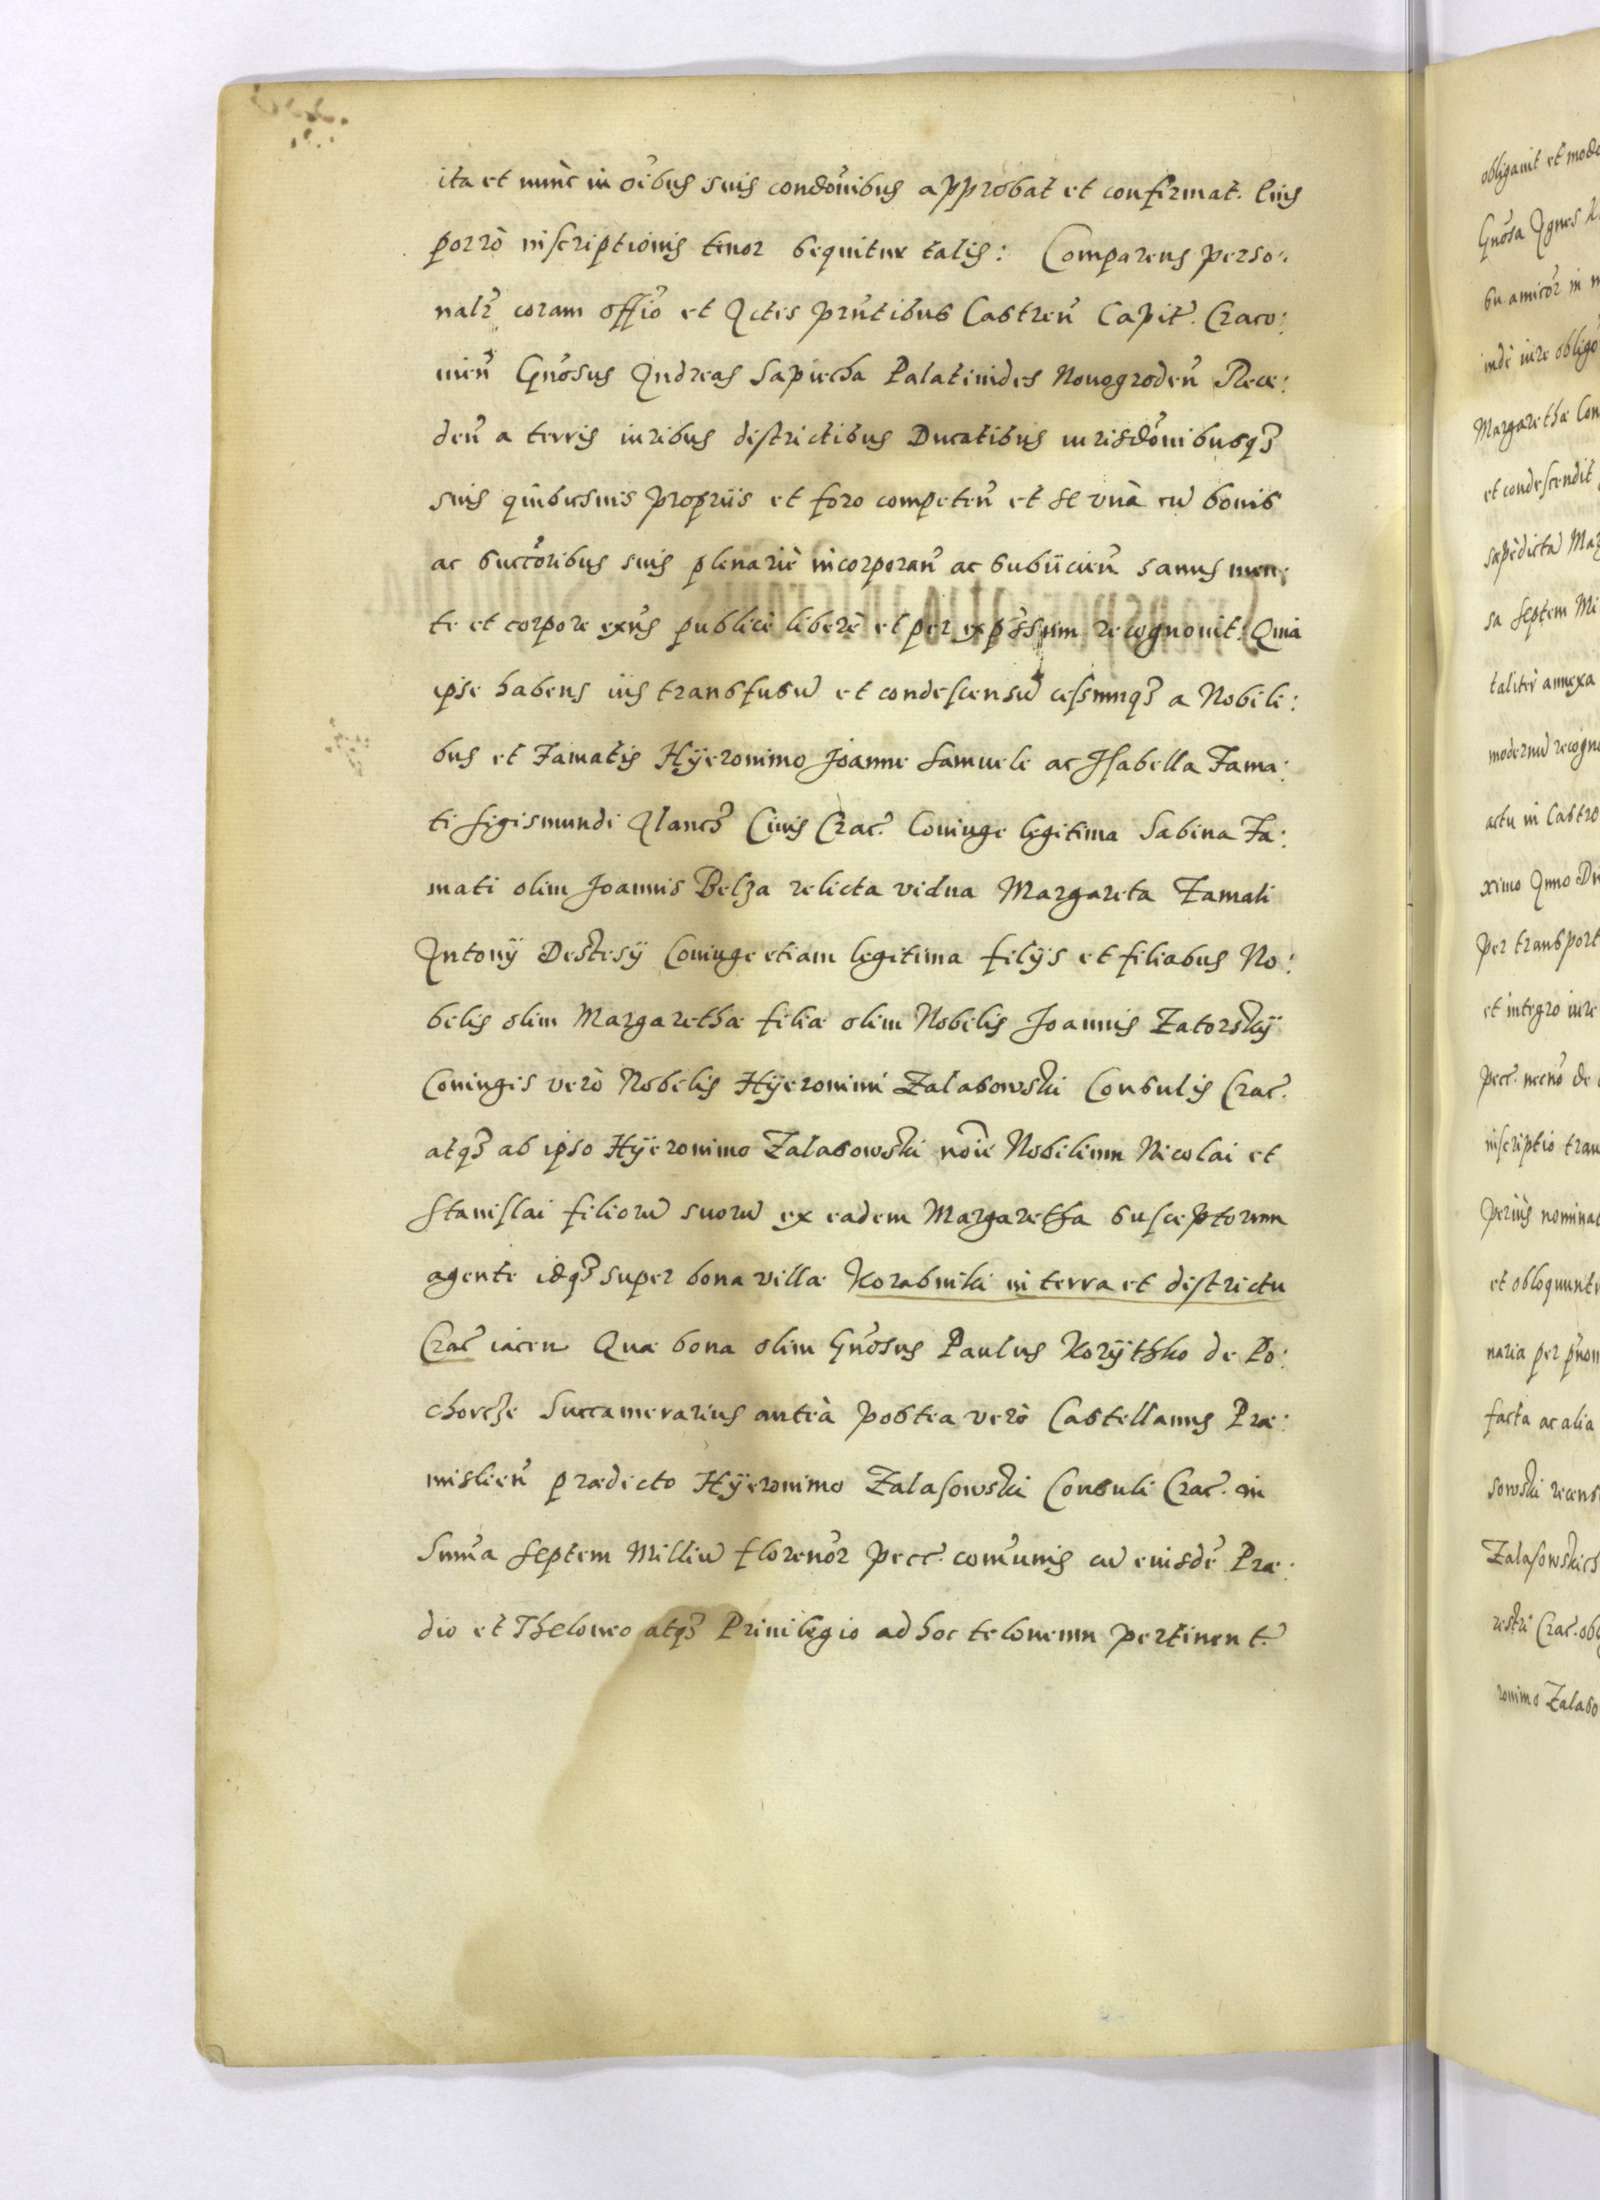 ita et nunc in oibus suis condonibus approbat et confirmat. Cuius
porrò inscriptionis tenor sequitur talis: Comparens perso:
nalr coram offio et Actis prntibus Castren Capit. Craco:
uien Gnosus Andreas Sapiecha Palatinides Nouogroden Rece:
den a terris iuribus districtibus Ducatibus iurisdonibusq3
suis quibusuis proprijs et foro competen et se vnà cu bonis
ac succoribus suis plenariè incorporan ac subijcien sanus men:
te et corpore exns publicè liberè et per expssum recognouit. Quia
ipse habens ius transfusu et condescensu cessumq3 a Nobili:
bus et Famatis Hÿeronimo Joanne Samuele ac Isabella Fama:
ti Sigismundi Alancz Ciuis Crac. Coniuge legitima Sabina Fa:
mati olim Joannis Belza relicta vidua Margareta Famati
Antonÿ Destesÿ Coniuge etiam legitima filÿs et filiabus No:
bilis olim Margarethæ filiæ olim Nobilis Joannis Zatorskÿ
Coniugis verò Nobilis Hÿeronimi Zalasowski Consulis Crac.
atq3 ab ipso Hÿeronimo Zalasowski noie Nobilium Nicolai et
Stanislai filioru suoru ex eadem Margaretha susceptorum
agente idq3 super bona villæ Korabniki in terra et districtu
Crac iacen Quæ bona olim Gnosus Paulus Korÿthko de Po:
chorcze Succamerarius anteà postea verò Castellanus Præ:
mislien prædicto Hÿeronimo Zalasowski Consuli Crac. in
Suma Septem Milliu florenor pecc. comunis cu eiusde Præ:
dio et Theloneo atq3 Priuilegio ad hoc teloneum pertinent.
obligauit et
Gnosa Agnes
su amicor in
inde iure
Margarethæ
et condescendit
sæpedicta
sa Septem
taliter annexa
modernu
actu in Castro
ximo Anno
per
et integro iure
pecc. necno de
inscriptio
perius
et obloquuntur
naria per
facta ac alia
sowski
restri Crac.
ronimo